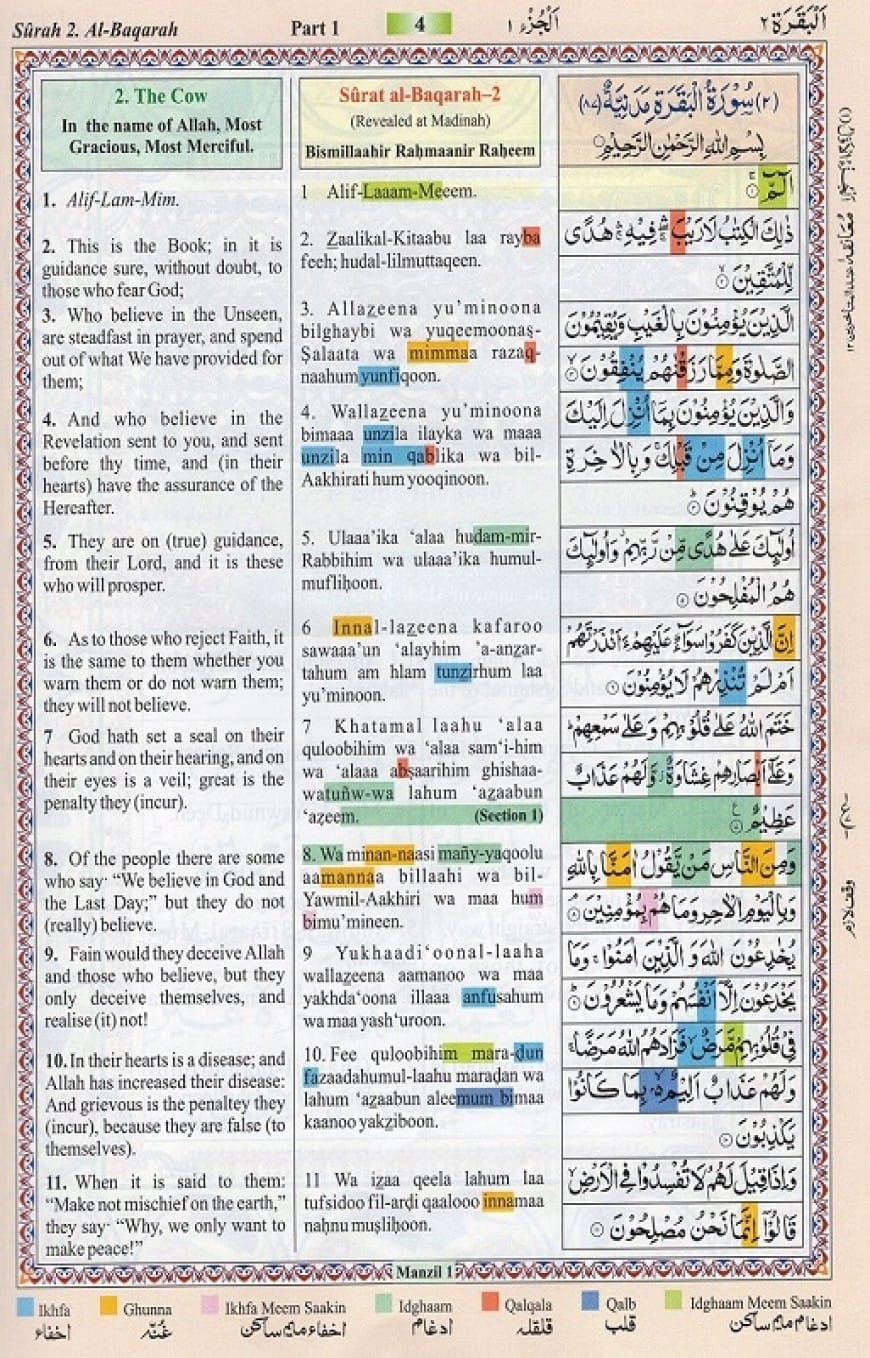 Sûrah 2. Al-Baqarah
Part 1
4
اَلْجُزْءُ ١
اَلْبَقَرَة ٢
2. The Cow
In the name of Allah, Most
Gracious, Most Merciful.
1. Alif-Lam-Mim.
2. This is the Book; in it is
guidance sure, without doubt, to
those who fear God;
3. Who believe in the Unseen,
are steadfast in prayer, and spend
out of what We have provided for
them;
4. And who believe in the
Revelation sent to you, and sent
before thy time, and (in their
hearts) have the assurance of the
Hereafter.
5. They are on (true) guidance,
from their Lord, and it is these
who will prosper.
6. As to those who reject Faith, it
is the same to them whether you
warn them or do not warn them;
they will not believe.
7 God hath set a seal on their
hearts and on their hearing, and on
their eyes is a veil; great is the
penalty they (incur).
8. Of the people there are some
who say· “We believe in God and
the Last Day;” but they do not
(really) believe.
9. Fain would they deceive Allah
and those who believe, but they
only deceive themselves, and
realise (it) not!
10. In their hearts is a disease; and
Allah has increased their disease:
And grievous is the penaltey they
(incur), because they are false (to
themselves).
11. When it is said to them:
“Make not mischief on the earth,”
they say· “Why, we only want to
make peace!”
Sûrat al-Baqarah–2
(Revealed at Madinah)
Bismillaahir Raḥmaanir Raḥeem
1 Alif-Laaam-Meeem.
2. Zaalikal-Kitaabu laa rayba
feeh; hudal-lilmuttaqeen.
3. Allazeena yu’minoona
bilghaybi wa yuqeemoonaṣ-
Ṣalaata wa mimmaa razaq-
naahum yunfiqoon.
4. Wallazeena yu’minoona
bimaaa unzila ilayka wa maaa
unzila min qablika wa bil-
Aakhirati hum yooqinoon.
5. Ulaaa’ika ‘alaa hudam-mir-
Rabbihim wa ulaaa’ika humul-
mufliḥoon.
6 Innal-lazeena kafaroo
sawaaa’un ‘alayhim ’a-anzar-
tahum am hlam tunzirhum laa
yu’minoon.
7 Khatamal laahu ‘alaa
quloobihim wa ‘alaa sam‘i-him
wa ‘alaaa abṣaarihim ghishaa-
watuñw-wa lahum ‘azaabun
‘aẓeem. (Section 1)
8. Wa minan-naasi mañy-yaqoolu
aamannaa billaahi wa bil-
Yawmil-Aakhiri wa maa hum
bimu’mineen.
9 Yukhaadi‘oonal-laaha
wallazeena aamanoo wa maa
yakhda‘oona illaaa anfusahum
wa maa yash‘uroon.
10. Fee quloobihim mara-ḍun
fazaadahumul-laahu maraḍan wa
lahum ‘azaabun aleemum bimaa
kaanoo yakziboon.
11 Wa izaa qeela lahum laa
tufsidoo fil-arḍi qaalooo innamaa
naḥnu muṣliḥoon.
(٢) سُوْرَةُ الْبَقَرَةِ مَدَنِيَّةٌ (٨٧)
بِسْمِ اللّٰهِ الرَّحْمٰنِ الرَّحِيْمِ
الٓمّٓ ۝١
ذٰلِكَ الْكِتٰبُ لَا رَيْبَ ۛ فِيْهِ ۛ هُدًى
لِّلْمُتَّقِيْنَ ۝٢
الَّذِيْنَ يُؤْمِنُوْنَ بِالْغَيْبِ وَيُقِيْمُوْنَ
الصَّلٰوةَ وَمِمَّا رَزَقْنٰهُمْ يُنْفِقُوْنَ ۝٣
وَالَّذِيْنَ يُؤْمِنُوْنَ بِمَآ اُنْزِلَ اِلَيْكَ
وَمَآ اُنْزِلَ مِنْ قَبْلِكَ ۚ وَبِالْاٰخِرَةِ
هُمْ يُوْقِنُوْنَ ۝٤
اُولٰٓئِكَ عَلٰى هُدًى مِّنْ رَّبِّهِمْ ۗ وَاُولٰٓئِكَ
هُمُ الْمُفْلِحُوْنَ ۝٥
اِنَّ الَّذِيْنَ كَفَرُوْا سَوَآءٌ عَلَيْهِمْ ءَاَنْذَرْتَهُمْ
اَمْ لَمْ تُنْذِرْهُمْ لَا يُؤْمِنُوْنَ ۝٦
خَتَمَ اللّٰهُ عَلٰى قُلُوْبِهِمْ وَعَلٰى سَمْعِهِمْ ۗ
وَعَلٰٓى اَبْصَارِهِمْ غِشَاوَةٌ ۫ وَّلَهُمْ عَذَابٌ
عَظِيْمٌ ۝٧
وَمِنَ النَّاسِ مَنْ يَّقُوْلُ اٰمَنَّا بِاللّٰهِ
وَبِالْيَوْمِ الْاٰخِرِ وَمَا هُمْ بِمُؤْمِنِيْنَ ۝٨
يُخٰدِعُوْنَ اللّٰهَ وَالَّذِيْنَ اٰمَنُوْا ۚ وَمَا
يَخْدَعُوْنَ اِلَّآ اَنْفُسَهُمْ وَمَا يَشْعُرُوْنَ ۝٩
فِيْ قُلُوْبِهِمْ مَّرَضٌ ۙ فَزَادَهُمُ اللّٰهُ مَرَضًا ۚ
وَلَهُمْ عَذَابٌ اَلِيْمٌ ۢ بِمَا كَانُوْا
يَكْذِبُوْنَ ۝١٠
وَاِذَا قِيْلَ لَهُمْ لَا تُفْسِدُوْا فِي الْاَرْضِ ۙ
قَالُوْٓا اِنَّمَا نَحْنُ مُصْلِحُوْنَ ۝١١
وقف لازم
Manzil 1
Ikhfa
Ghunna
Ikhfa Meem Saakin
Idghaam
Qalqala
Qalb
Idghaam Meem Saakin
اخفاء
غُنّه
اخفاء میم ساکن
ادغام
قلقلہ
قلب
ادغام میم ساکن